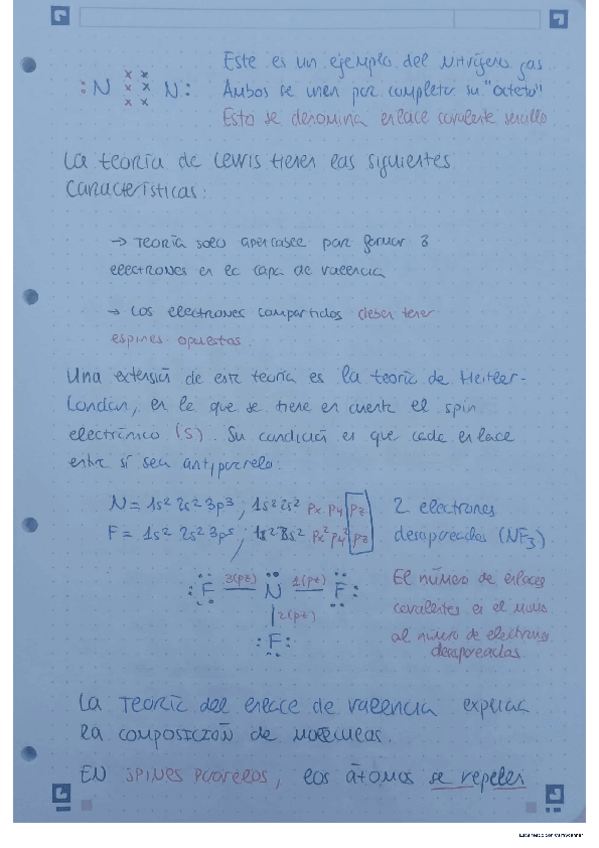 Este es un ejemplo del Nitrógeno gas.
:N ×× ×× ×× N: Ambos se unen par completar su "octeto"
Esto se denomina enlace covalente sencillo
La teoría de Lewis tienen las siguientes
características:
→ Teoría solo aperrasee par formar 8
electrones en la capa de valencia
→ Los electrones compartidos deben tener
espines opuestos.
Una extensión de este teoría es la teoría de Heitler-
London, en le que se tiene en cuente el spin
electrónico (s). Su condición es que cade enlace
entre sí sea antiparelo.
N = 1s² 2s² 3p³ ; 1s² 2s² px py pz 2 electrones
F = 1s² 2s² 3p⁵ ; 1s² 2s² px² py² pz desapareados (NF₃)
:F — 3(pz) — N — 1(pz) — F: El número de enlaces
2(pz) covalentes es el mismo
:F: al número de electrones
desapareados.
La Teoría del enlace de valencia explica
la composición de moléculas.
EN SPINES PARALELOS, los átomos se repelen